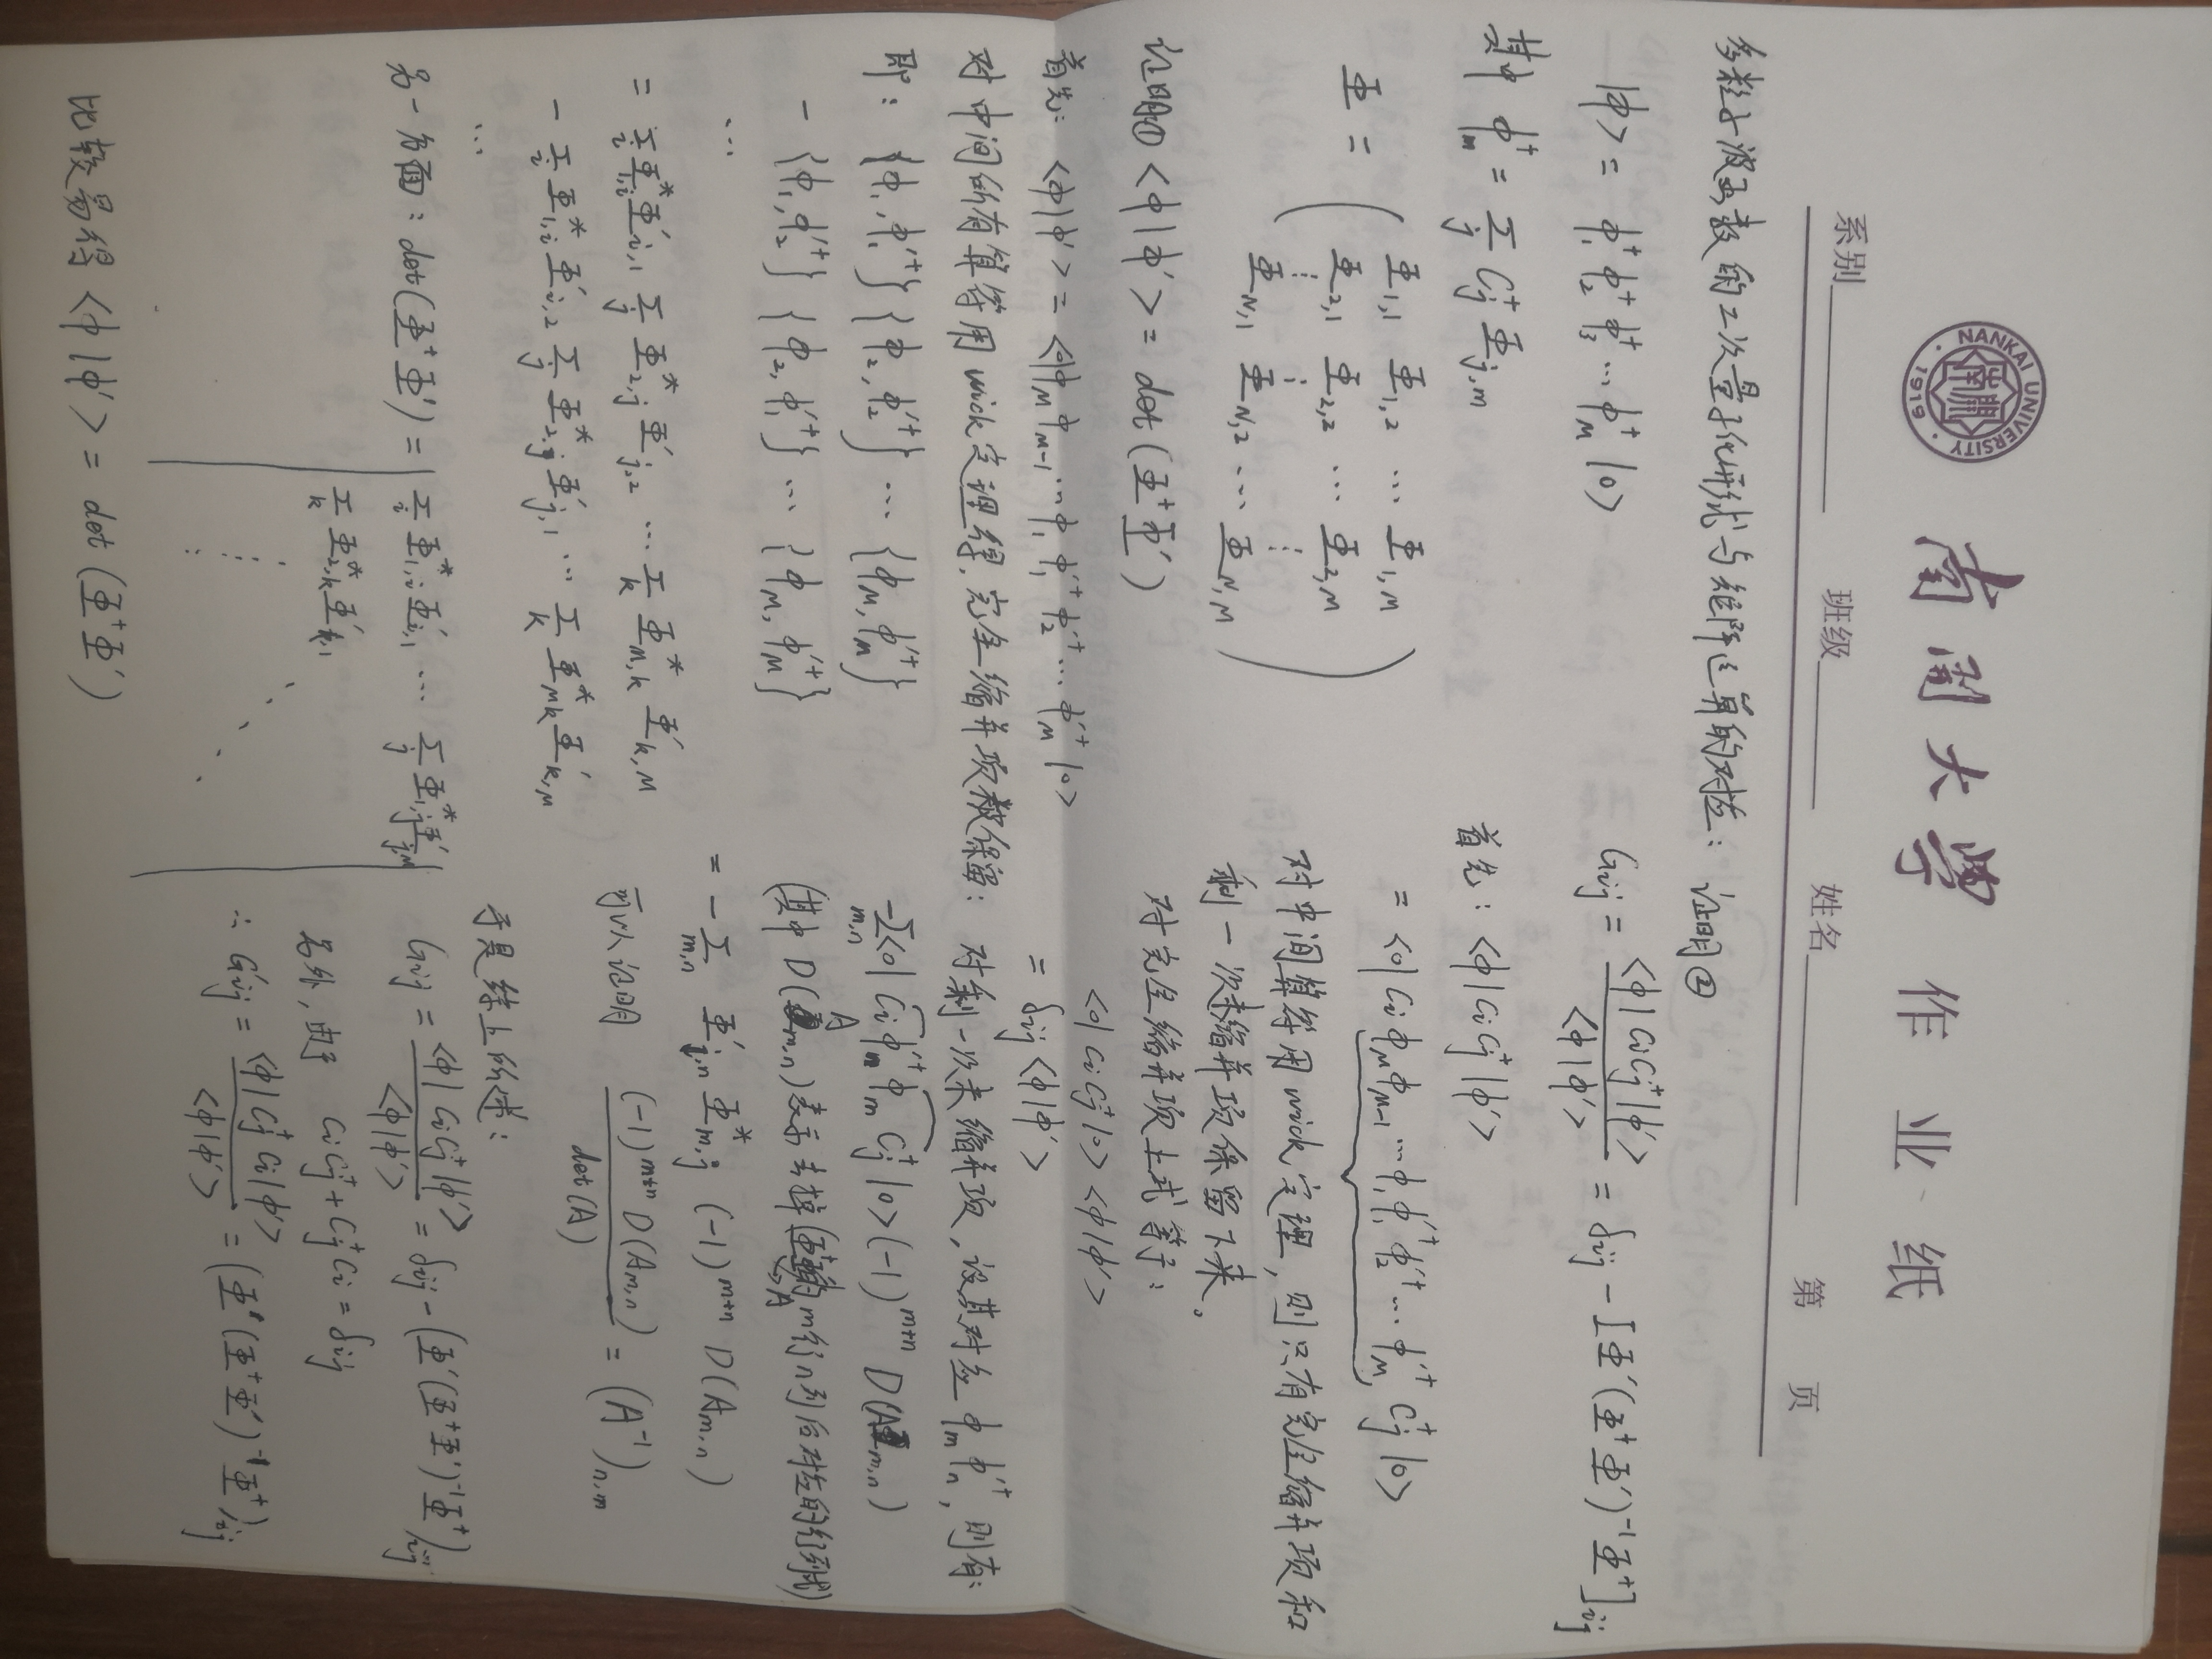 NANKAI UNIVERSITY
南開
1919
南開大學 作业纸
系别 班级 姓名 第 页
多粒子波函数的二次量子化形式与矩阵运算的对应：
|ϕ> = ϕ₁⁺ϕ₂⁺ϕ₃⁺…ϕ_M⁺|0>
其中 ϕ_m⁺ = Σ_j C_j⁺ Φ_{j,m}
Φ = ( Φ_{1,1} Φ_{1,2} … Φ_{1,M}
Φ_{2,1} Φ_{2,2} … Φ_{2,M}
⋮ ⋮ ⋮
Φ_{N,1} Φ_{N,2} … Φ_{N,M} )
证明① <ϕ|ϕ'> = det(Φ⁺Φ')
首先: <ϕ|ϕ'> = <0|ϕ_Mϕ_{M-1}…ϕ₁ϕ₁'⁺ϕ₂'⁺…ϕ_M'⁺|0>
对中间所有算符用wick定理得,完全缩并项被保留：
即： {ϕ₁,ϕ₁'⁺}{ϕ₂,ϕ₂'⁺}…{ϕ_M,ϕ_M'⁺}
- {ϕ₁,ϕ₂'⁺}{ϕ₂,ϕ₁'⁺}…{ϕ_M,ϕ_M'⁺}
…
= Σ_i Φ*_{1,i}Φ'_{i,1} Σ_j Φ*_{2,j}Φ'_{j,2} … Σ_k Φ*_{M,k}Φ'_{k,M}
- Σ_i Φ*_{1,i}Φ'_{i,2} Σ_j Φ*_{2,j}Φ'_{j,1} … Σ_k Φ*_{Mk}Φ'_{k,M}
…
另一方面：det(Φ⁺Φ') = | Σ_i Φ*_{1,i}Φ'_{i,1} … Σ_j Φ*_{1,j}Φ'_{j,M} |
Σ_k Φ*_{2,k}Φ'_{k,1}
⋮ ⋱
比较易得 <ϕ|ϕ'> = det(Φ⁺Φ')
证明②
G_{ij} = <ϕ|C_iC_j⁺|ϕ'> / <ϕ|ϕ'> = δ_{ij} - [Φ'(Φ⁺Φ')⁻¹Φ⁺]_{ij}
首先：<ϕ|C_iC_j⁺|ϕ'>
= <0|C_iϕ_Mϕ_{M-1}…ϕ₁ϕ₁'⁺ϕ₂'⁺…ϕ_M'⁺C_j⁺|0>
对中间算符用wick定理,则只有完全缩并项和
剩一次未缩并项保留下来。
对完全缩并项上式等于：
<0|C_iC_j⁺|0><ϕ|ϕ'>
= δ_{ij}<ϕ|ϕ'>
对剩一次未缩并项,设其对应 ϕ_mϕ_n'⁺,则有:
-Σ_{m,n}<0|C_iϕ_n'⁺ϕ_mC_j⁺|0>(-1)^{m+n} D(A_{m,n})
(其中 D(A_{m,n})表示去掉 A m行n列后对应的行列式)
= -Σ_{m,n} Φ'_{j,n} Φ*_{m,j} (-1)^{m+n} D(A_{m,n})
可以证明 (-1)^{m+n} D(A_{m,n}) / det(A) = (A⁻¹)_{n,m}
于是综上所述：
G_{ij} = <ϕ|C_iC_j⁺|ϕ'> / <ϕ|ϕ'> = δ_{ij} - (Φ'(Φ⁺Φ')⁻¹Φ⁺)_{ij}
另外,由于 C_iC_j⁺+C_j⁺C_i = δ_{ij}
∴ G'_{ij} = <ϕ|C_j⁺C_i|ϕ'> / <ϕ|ϕ'> = (Φ'(Φ⁺Φ')⁻¹Φ⁺)_{ij}